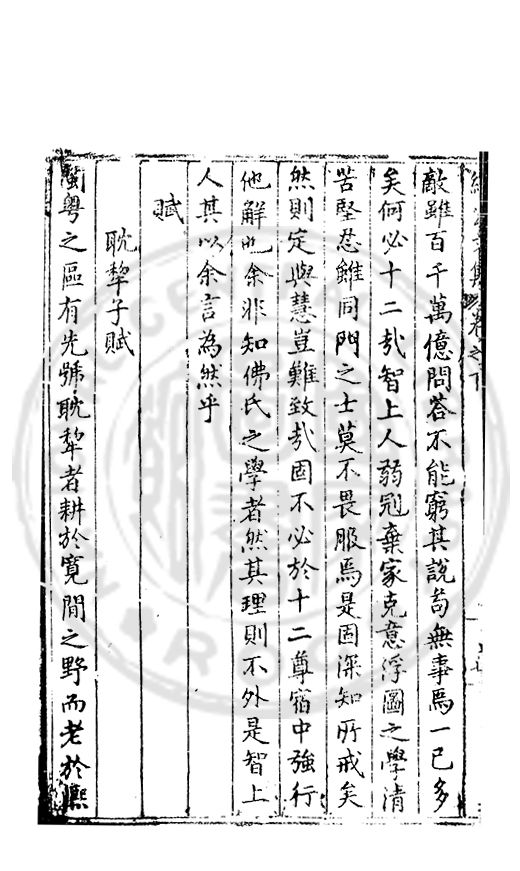 敵雖百千萬億問荅不能窮其說苟無事焉一已多
矣何必十二㢤智上人弱冠棄家克意浮圖之學清
苦堅忍雖同門之士莫不畏服焉是固深知所戒矣
然則定與慧豈難致㢤固不必於十二尊宿中強行
他解也余非知佛氏之學者然其理則不外是智上
人其以余言為然乎
賦
耽犂子賦
閩粤之區有先號耽犂者耕於寬閒之野而老於熈